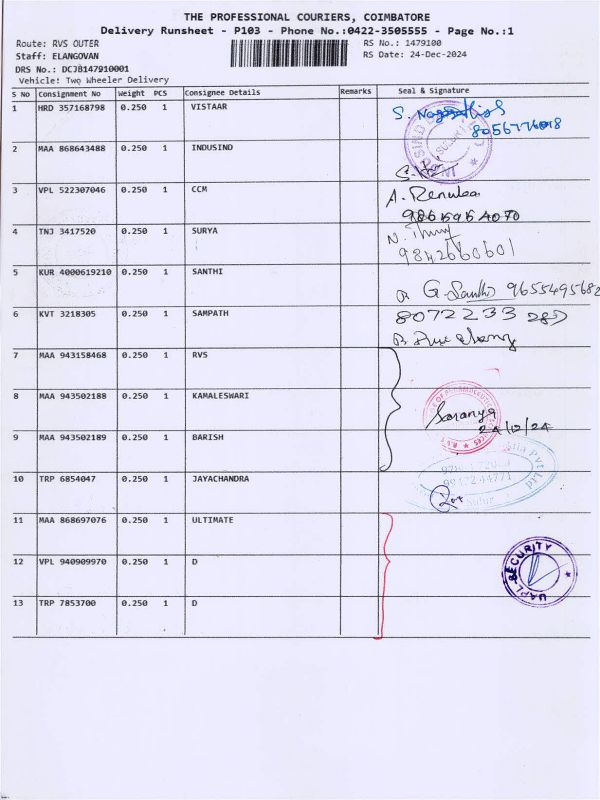 THE PROFESSIONAL COURIERS, COIMBATORE
Delivery Runsheet - P103 - Phone No.:0422-3505555 - Page No.:1
Route: RVS OUTER
RS No.: 1479100
Staff: ELANGOVAN
RS Date: 24-Dec-2024
DRS No.: DCJB147910001
Vehicle: Two Wheeler Delivery
S No Consignment No Weight PCS Consignee Details Remarks Seal & Signature
1 HRD 357168798 0.250 1 VISTAAR
2 MAA 868643488 0.250 1 INDUSIND
3 VPL 522307046 0.250 1 CCM A. Renuka
4 TNJ 3417520 0.250 1 SURYA
9842660601
5 KUR 4000619210 0.250 1 SANTHI G. Santhi 9655495682
6 KVT 3218305 0.250 1 SAMPATH 8072233 283
7 MAA 943158468 0.250 1 RVS
8 MAA 943502188 0.250 1 KAMALESWARI Saranya
24/12/24
9 MAA 943502189 0.250 1 BARISH
10 TRP 6854047 0.250 1 JAYACHANDRA
11 MAA 868697076 0.250 1 ULTIMATE
12 VPL 940909970 0.250 1 D UAPL SECURITY
13 TRP 7853700 0.250 1 D